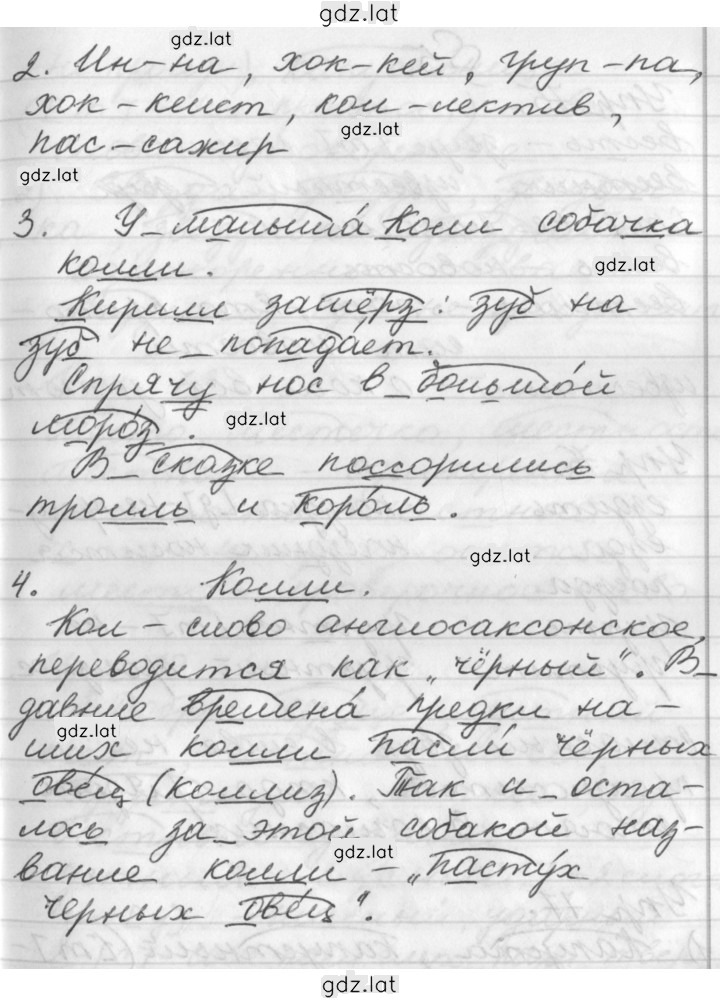 gdz.lat
gdz.lat
2. Ин-на, хок-кей, груп-па,
хок-кеист, кол-лектив,
gdz.lat
пас-сажир
gdz.lat
3. У малыша́ Коли собачка
колли.
gdz.lat
Кирилл замёрз: зуб на
зуб не попада́ет.
Спрячу нос в большо́й
моро́з.
gdz.lat
В сказке поссорились
тролль и коро́ль.
gdz.lat
4. Колли.
Кол - слово англосаксонское,
переводится как „чёрный". В
давние времена́ предки на-
gdz.lat
ших колли пасли́ чёрных
ове́ц (коллиз). Так и оста-
лось за этой собакой наз-
gdz.lat
вание колли - „пасту́х
черных ове́ц".
gdz.lat